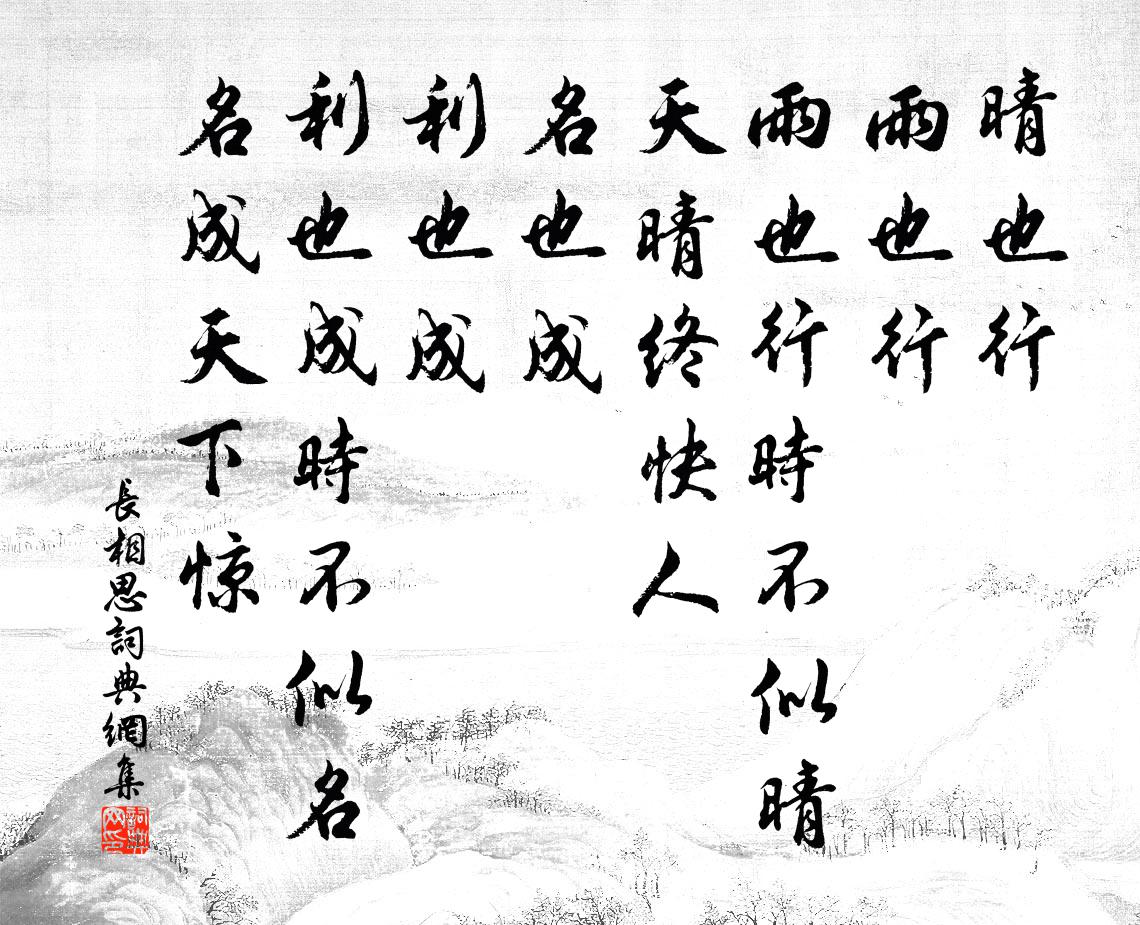 晴也行
雨也行
雨也行時不似晴
天晴終快人
名也成
利也成
利也成時不似名
名成天下惊
長相思詞典網集
詞典網印